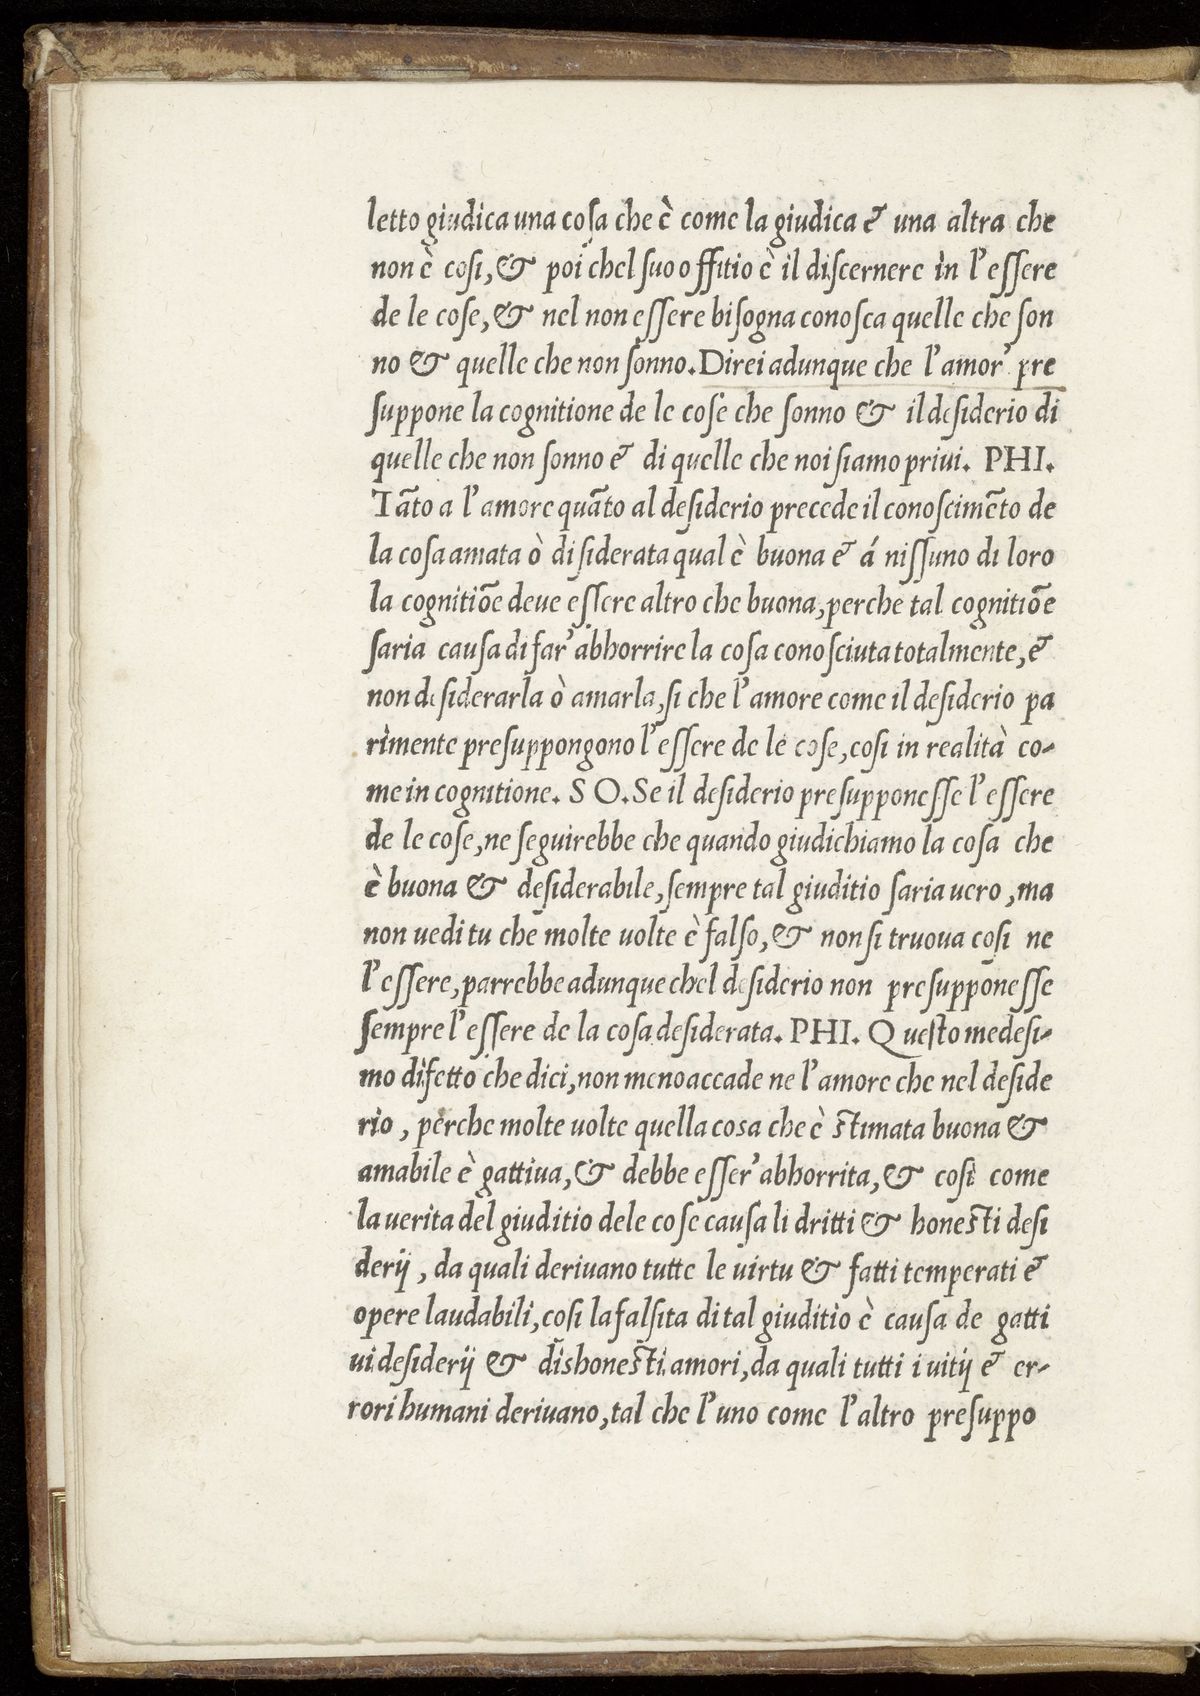 letto giudica una cosa che è come la giudica & una altra che
non è cosi, & poi chel suo offitio è il discernere in l'essere
de le cose, & nel non essere bisogna conosca quelle che son
no & quelle che non sonno. Direi adunque che l'amor' pre
suppone la cognitione de le cose che sonno & il desiderio di
quelle che non sonno & di quelle che noi siamo priui. PHI.
Tāto a l'amore quāto al desiderio precede il conoscimēto de
la cosa amata ò disiderata qual è buona & á nissuno di loro
la cognitiōe deue essere altro che buona, perche tal cognitiōe
saria causa di far' abhorrire la cosa conosciuta totalmente, &
non desiderarla ò amarla, si che l'amore come il desiderio pa
rimente presuppongono l'essere de le cose, cosi in realità co-
me in cognitione. S O. Se il desiderio presupponesse l'essere
de le cose, ne seguirebbe che quando giudichiamo la cosa che
è buona & desiderabile, sempre tal giuditio saria uero, ma
non uedi tu che molte uolte è falso, & non si truoua cosi ne
l'essere, parrebbe adunque chel desiderio non presupponesse
sempre l'essere de la cosa desiderata. PHI. Questo medesi-
mo difetto che dici, non meno accade ne l'amore che nel deside
rio, perche molte uolte quella cosa che è stimata buona &
amabile è gattiua, & debbe esser' abhorrita, & cosi come
la uerita del giuditio dele cose causa li dritti & honesti desi
derij, da quali deriuano tutte le uirtu & fatti temperati &
opere laudabili, cosi la falsita di tal giuditio è causa de gatti
ui desiderij & dishonesti amori, da quali tutti i uitij & er-
rori humani deriuano, tal che l'uno come l'altro presuppo